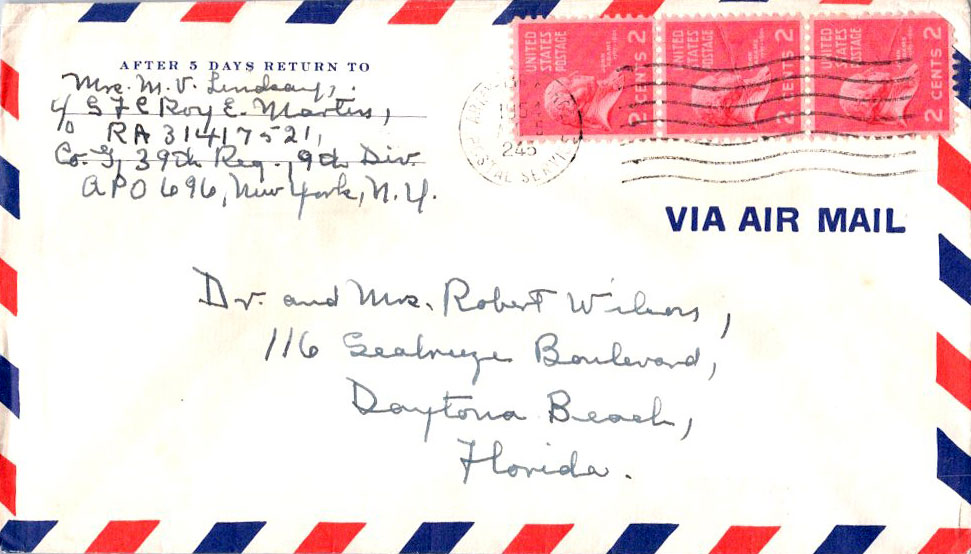 AFTER 5 DAYS RETURN TO
Mrs. M. V. Lindsay,
c/o SFC Roy E. Martin,
RA 31417521,
Co. G, 39th Reg., 9th Div.
APO 696, New York, N.Y.
UNITED STATES POSTAGE
2 CENTS 2
UNITED STATES POSTAGE
2 CENTS 2
UNITED STATES POSTAGE
2 CENTS 2
POSTAL SERVICE
245
VIA AIR MAIL
Dr. and Mrs. Robert Wilson,
116 Seabreeze Boulevard,
Daytona Beach,
Florida.